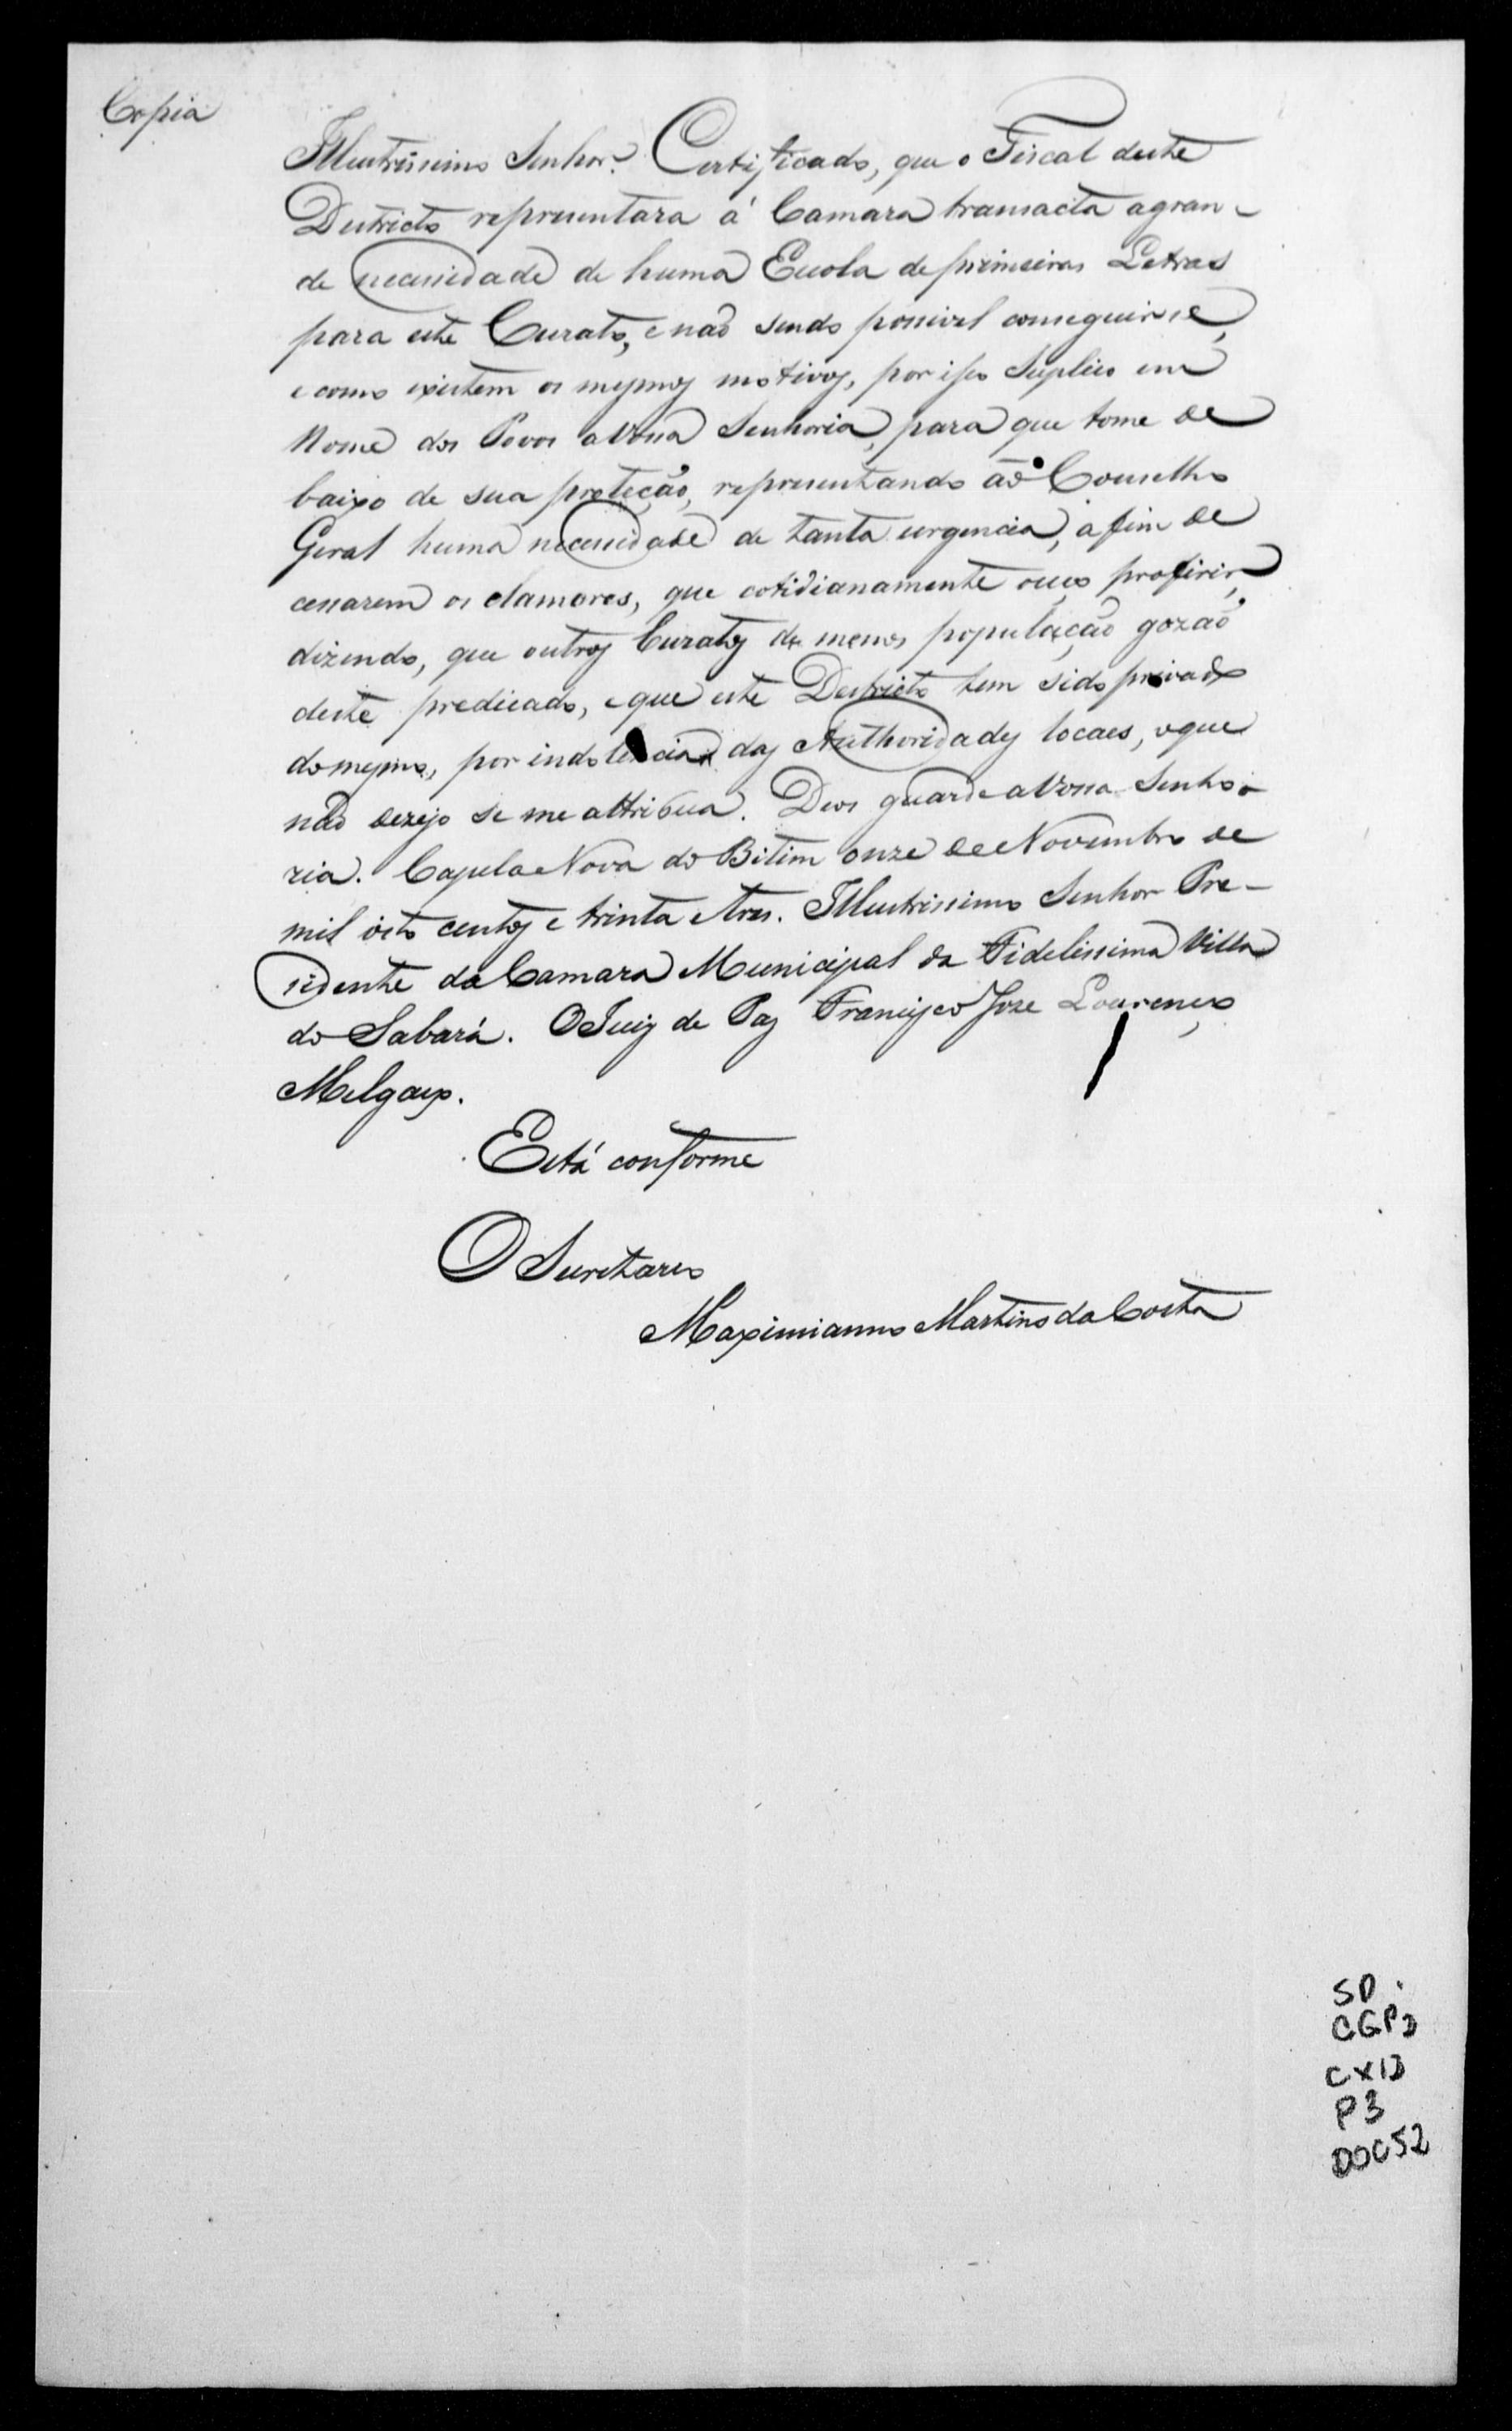 Copia
Illustrissimo Senhor. Certificado, que o Fiscal deste
Destricto representara á Camara transacta a gran-
de necessidade de huma Escola de primeiras Letras
para este Curato, e não sendo possivel conseguir-se,
e como existem os mesmos motivos, por isso Suplico em
Nome dos Povos a Vossa Senhoria, para que tome de
baixo de sua proteção, representando aõ Conselho
Geral huma necessidade de tanta urgencia, a fim de
cessarem os clamores, que cotidianamente ouço proferir,
dizendo, que outros Curatos de menos população gozaõ
deste predicado, e que este Destricto tem sido privado
do mesmo, por indolencia das Authoridades locaes, o que
não dezejo se me attribua. Deos guarde a Vossa Senho-
ria. Capela Nova do Bitim onze de Novembro de
mil oito centos e trinta e tres. Illustrissimo Senhor Pre-
sidente da Camara Municipal da Fidelissima Villa
do Sabará. O Juiz de Paz Francisco Joze Lourenço
Melgaço.
Está conforme
O Secretario
Maximianno Martins da Costa
SD.
CGP2
CX13
P3
DOC52